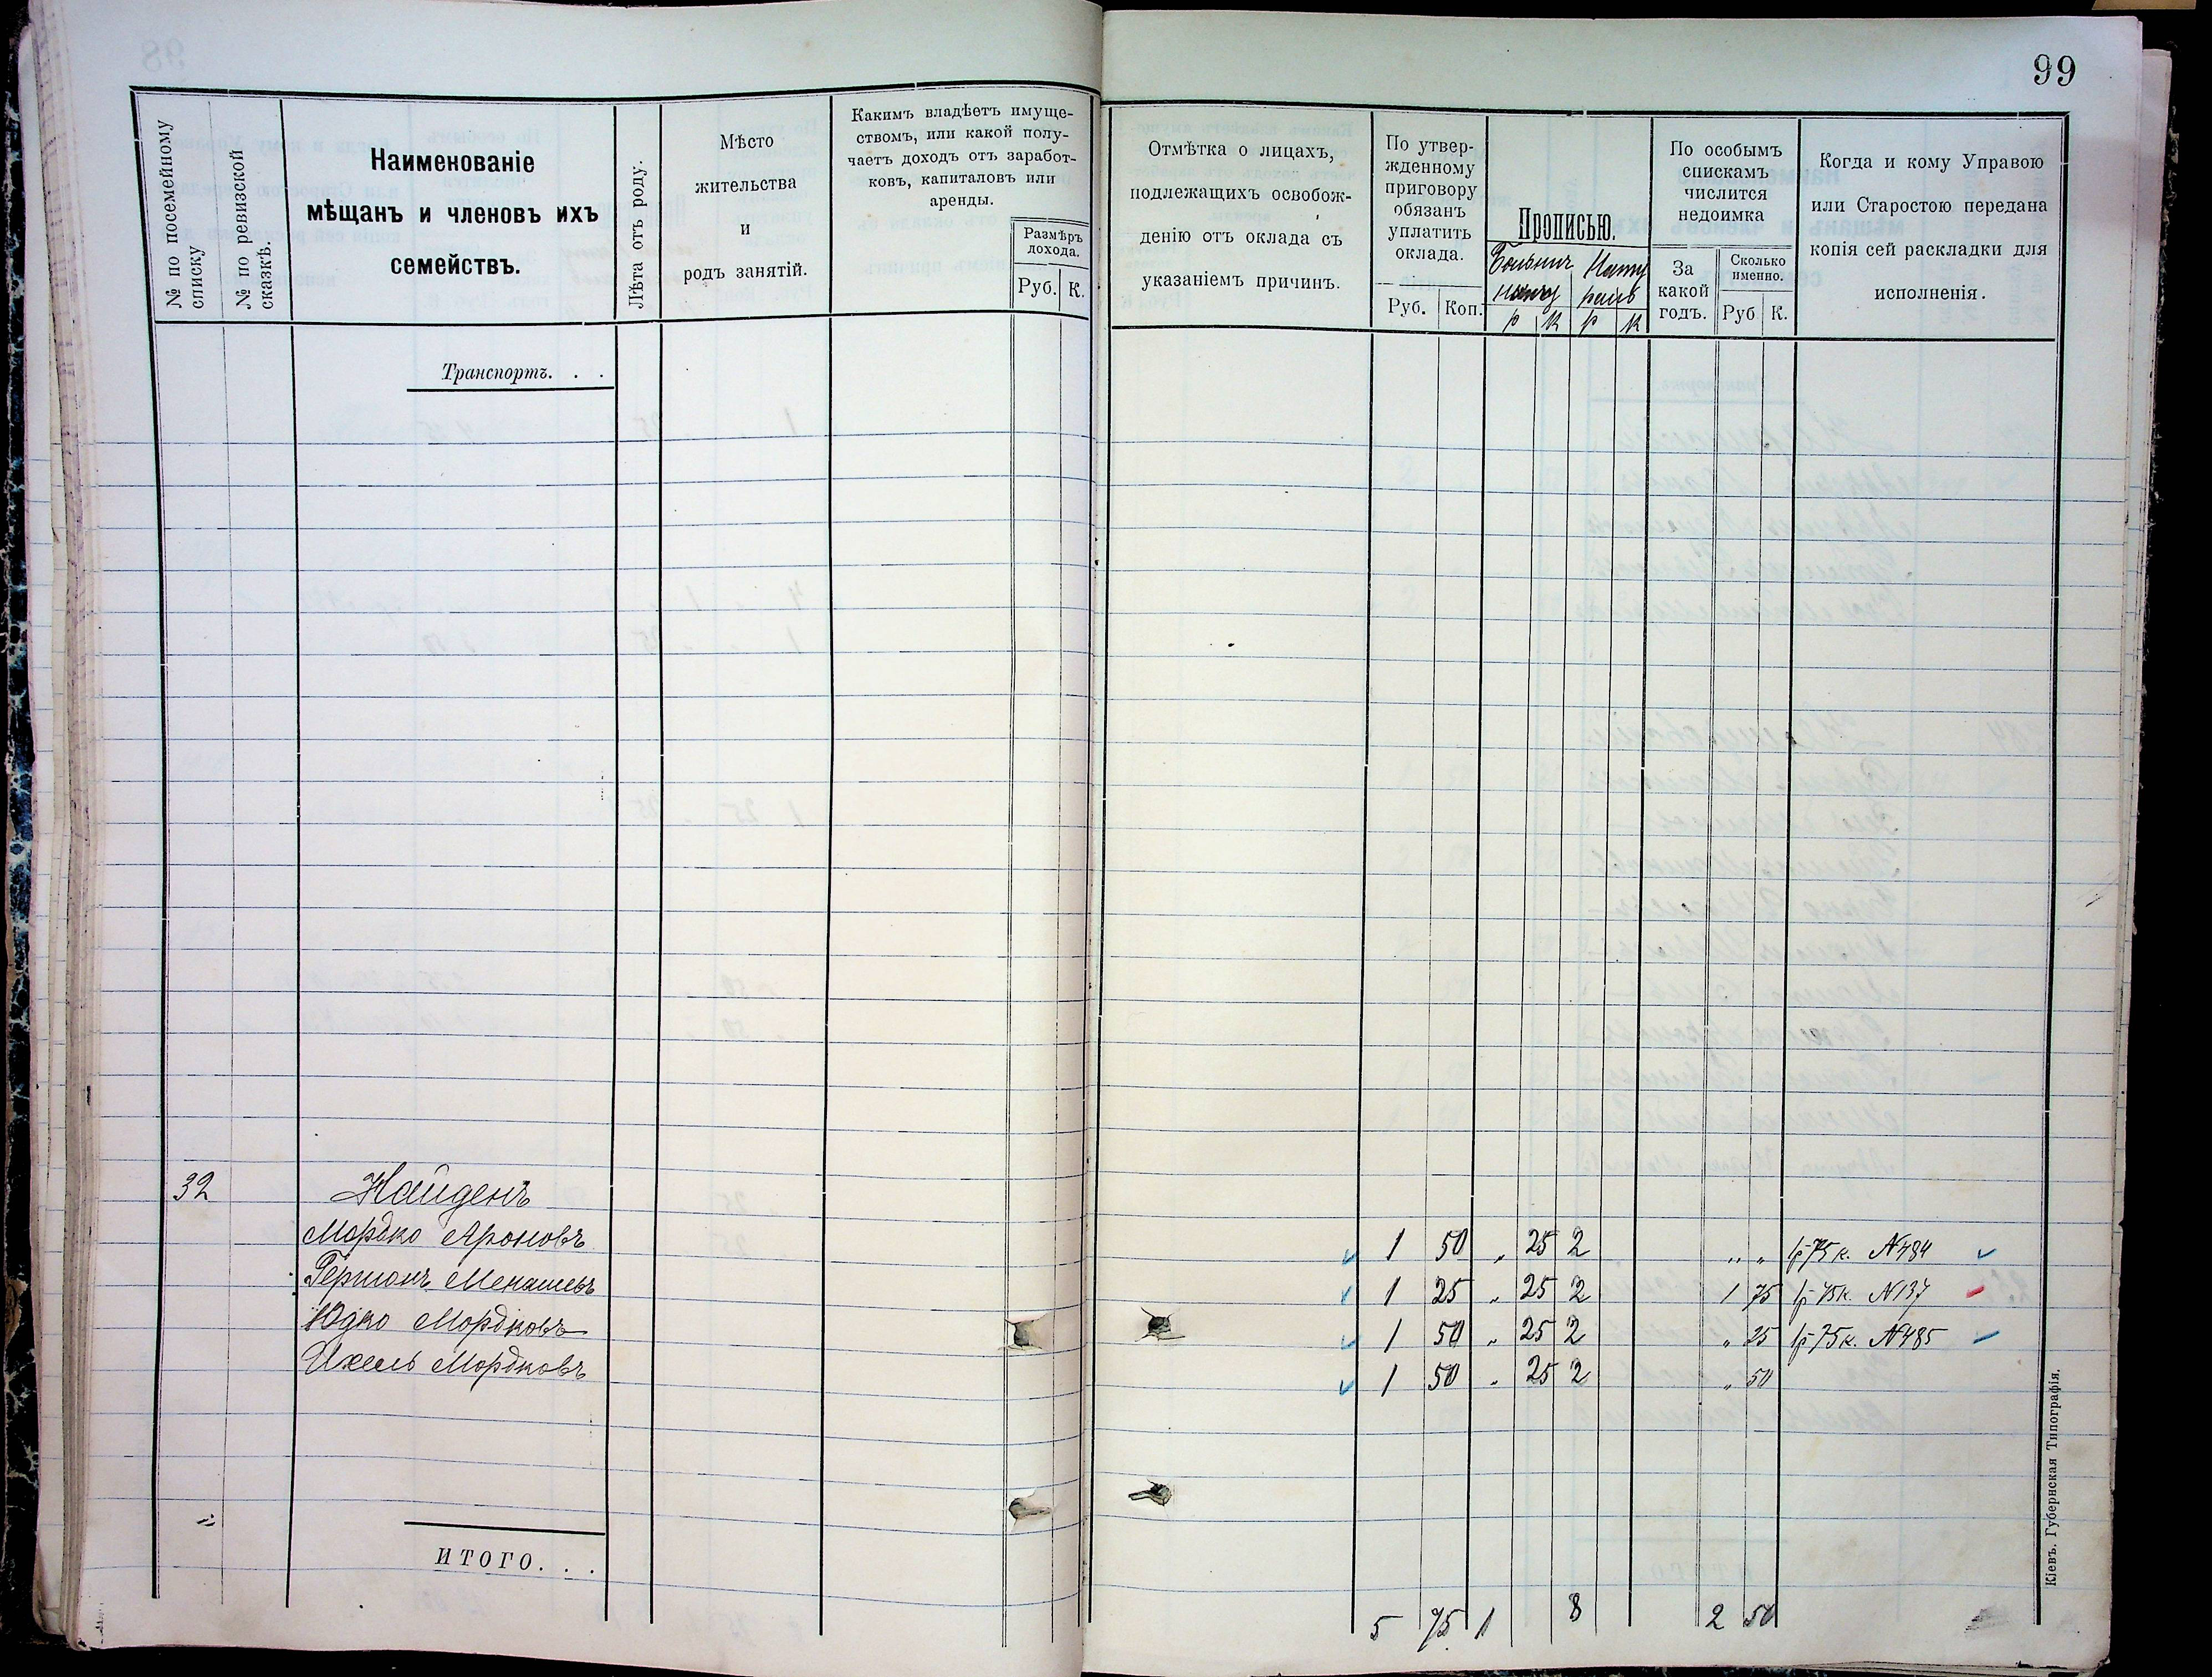 99
№ по посемейному
списку
№ по ревизской
сказкѣ.
Наименованіе
мѣщанъ и членовъ ихъ
семействъ.
Лѣта отъ роду.
Мѣсто
жительства
и
родъ занятій.
Какимъ владѣетъ имуще-
ствомъ, или какой полу-
чаетъ доходъ отъ заработ-
ковъ, капиталовъ или
аренды.
Размѣръ
дохода.
Руб. К.
Отмѣтка о лицахъ,
подлежащихъ освобож-
денію отъ оклада съ
указаніемъ причинъ.
По утвер-
жденному
приговору
обязанъ
уплатить
оклада.
Руб. Коп.
Прописью.
р к р к
По особымъ
спискамъ
числится
недоимка
За
какой
годъ.
Сколько
именно.
Руб К.
Когда и кому Управою
или Старостою передана
копія сей раскладки для
исполненія.
Транспортъ. . .
32 Найденъ
Мордко Ароновъ 1 50 „ 25 2 „ „ 1р 75 к. №484
Гершонъ Менашевъ 1 25 „ 25 2 1 75 1р 75 к. №137
Юдко Мордковъ 1 50 „ 25 2 „ 25 1р 75 к. №485
Ихель Мордковъ 1 50 „ 25 2 „ 50
ИТОГО. . .
5 75 1 8 2 50
Кіевъ. Губернская Типографія.